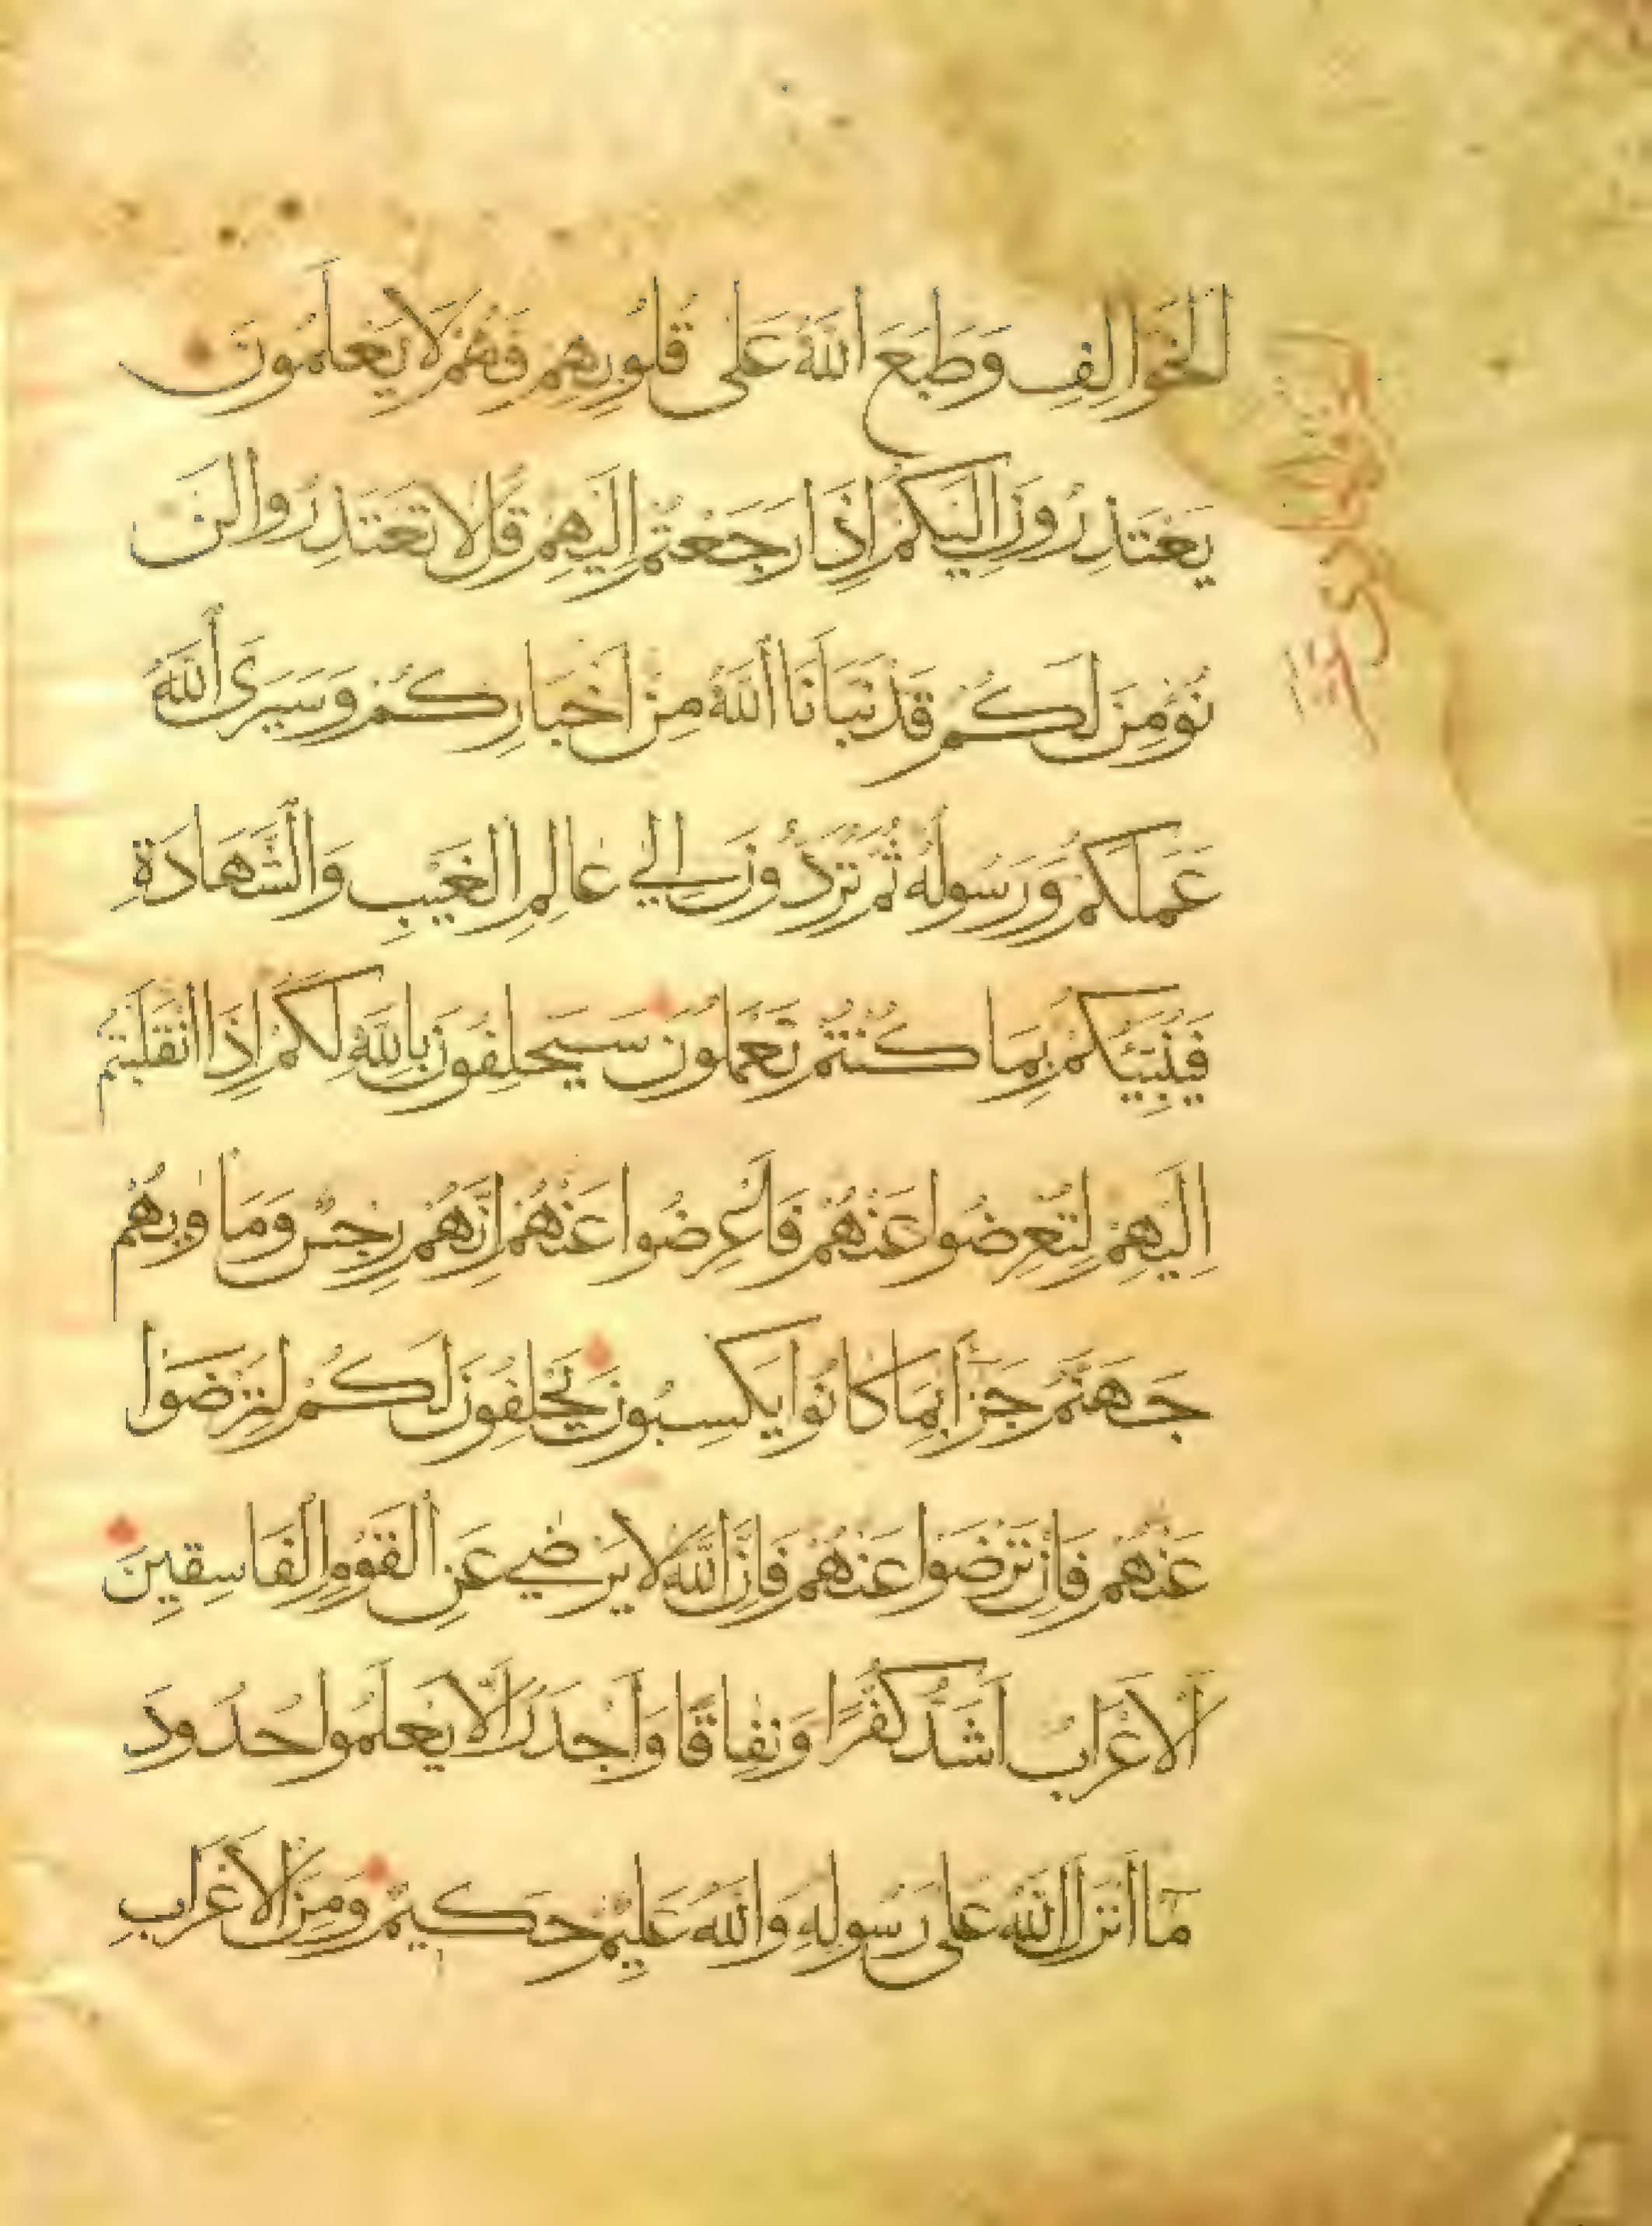 الخَوَالِفِ وَطَبَعَ اللَّهُ عَلَى قُلُوبِهِمْ فَهُمْ لَا يَعْلَمُونَ
يَعْتَذِرُونَ اِلَيْكُمْ اِذَا رَجَعْتُمْ اِلَيْهِمْ قُلْ لَا تَعْتَذِرُوا لَنْ
نُؤْمِنَ لَكُمْ قَدْ نَبَّاَنَا اللَّهُ مِنْ اَخْبَارِكُمْ وَسَيَرَى اللَّهُ
عَمَلَكُمْ وَرَسُولُهُ ثُمَّ تُرَدُّونَ اِلَي عَالِمِ الغَيْبِ وَالشَّهَادَةِ
فَيُنَبِّئُكُمْ بِمَا كُنْتُمْ تَعْمَلُونَ سَيَحْلِفُونَ بِاللَّهِ لَكُمْ اِذَا انْقَلَبْتُمْ
اِلَيْهِمْ لِتُعْرِضُوا عَنْهُمْ فَاَعْرِضُوا عَنْهُمْ اِنَّهُمْ رِجْسٌ وَمَاوٰيهُمْ
جَهَنَّمُ جَزَآءً بِمَا كَانُوا يَكْسِبُونَ يَحْلِفُونَ لَكُمْ لِتَرْضَوْا
عَنْهُمْ فَاِنْ تَرْضَوْا عَنْهُمْ فَاِنَّ اللَّهَ لَا يَرْضٰي عَنِ القَوْمِ الفَاسِقِينَ
اَلْاَعْرَابُ اَشَدُّ كُفْرًا وَنِفَاقًا وَاَجْدَرُ اَلَّا يَعْلَمُوا حُدُودَ
مَآ اَنْزَلَ اللَّهُ عَلَى رَسُولِهِ وَاللَّهُ عَلِيمٌ حَكِيمٌ وَمِنَ الْاَعْرَابِ